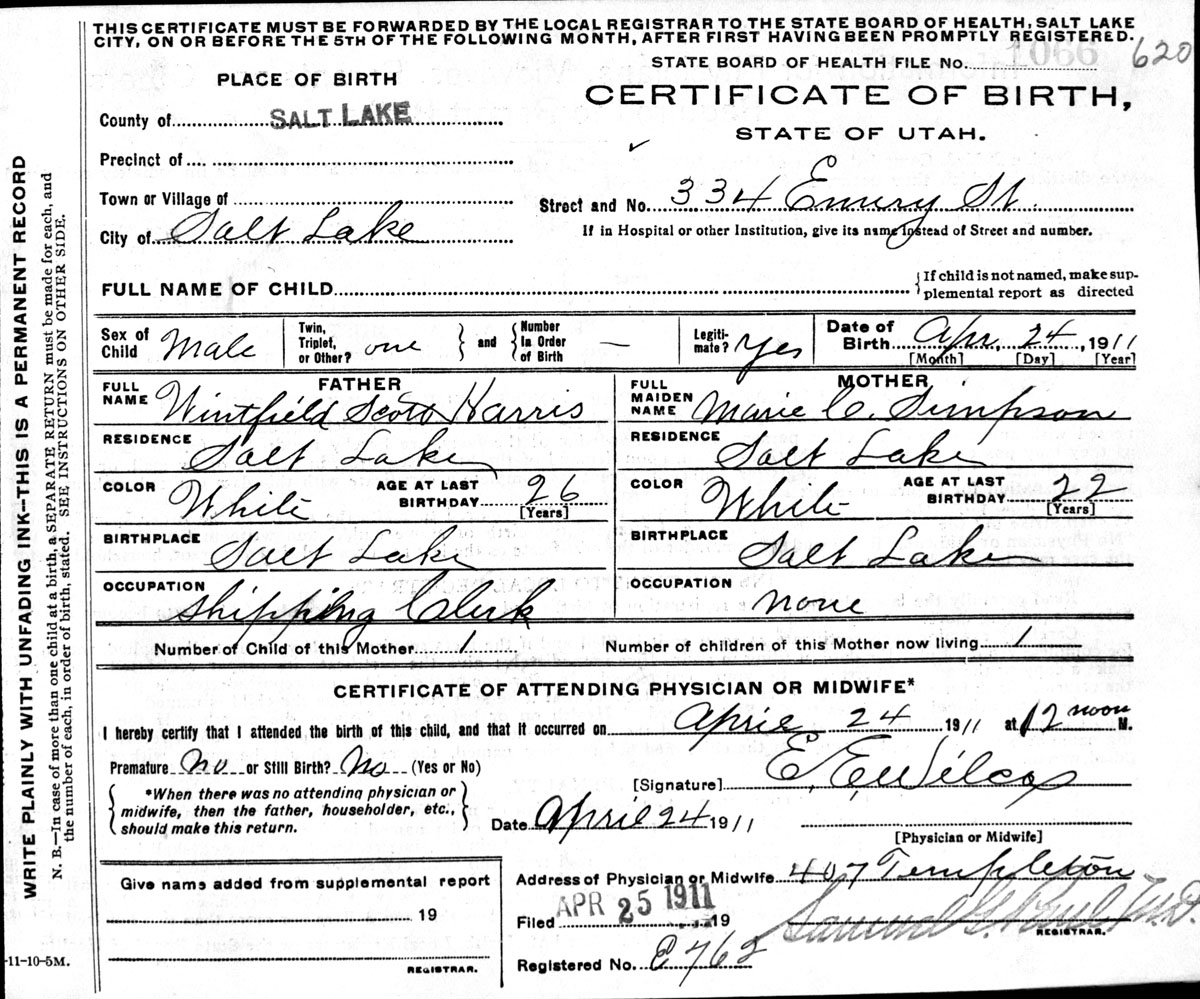 THIS CERTIFICATE MUST BE FORWARDED BY THE LOCAL REGISTRAR TO THE STATE BOARD OF HEALTH, SALT LAKE
CITY, ON OR BEFORE THE 5TH OF THE FOLLOWING MONTH, AFTER FIRST HAVING BEEN PROMPTLY REGISTERED.
620
STATE BOARD OF HEALTH FILE No. 1066
PLACE OF BIRTH
CERTIFICATE OF BIRTH,
County of SALT LAKE
STATE OF UTAH.
Precinct of
Town or Village of
Street and No. 334 Emery St.
City of Salt Lake
If in Hospital or other Institution, give its name instead of Street and number.
FULL NAME OF CHILD
If child is not named, make sup-
plemental report as directed
Sex of Child Male Twin, Triplet, or Other? one and Number In Order of Birth — Legiti-mate? Yes Date of Birth Apr. 24, 1911
[Month] [Day] [Year]
FATHER
MOTHER
FULL NAME Wintfield Scott Harris
FULL MAIDEN NAME Marie C. Simpson
RESIDENCE Salt Lake
RESIDENCE Salt Lake
COLOR White AGE AT LAST BIRTHDAY 26 [Years]
COLOR White AGE AT LAST BIRTHDAY 22 [Years]
BIRTHPLACE Salt Lake
BIRTHPLACE Salt Lake
OCCUPATION Shipping Clerk
OCCUPATION none
Number of Child of this Mother 1
Number of children of this Mother now living 1
CERTIFICATE OF ATTENDING PHYSICIAN OR MIDWIFE*
I hereby certify that I attended the birth of this child, and that it occurred on April 24 1911 at 12 noon M.
Premature No or Still Birth? No (Yes or No)
[Signature] E. E. Wilcox
*When there was no attending physician or
midwife, then the father, householder, etc.,
should make this return.
Date April 24 1911
[Physician or Midwife]
Give name added from supplemental report
19
REGISTRAR.
Address of Physician or Midwife 407 Templeton
Filed APR 25 1911 19
Samuel G. M.D.
REGISTRAR.
Registered No. E 762
-11-10-5M.
WRITE PLAINLY WITH UNFADING INK—THIS IS A PERMANENT RECORD
N. B.—In case of more than one child at a birth, a SEPARATE RETURN must be made for each, and
the number of each, in order of birth, stated. SEE INSTRUCTIONS ON OTHER SIDE.